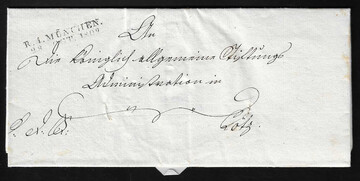 R.4.MÜNCHEN.
An
Die Königlich allgemeine Stiftungs
Administration in